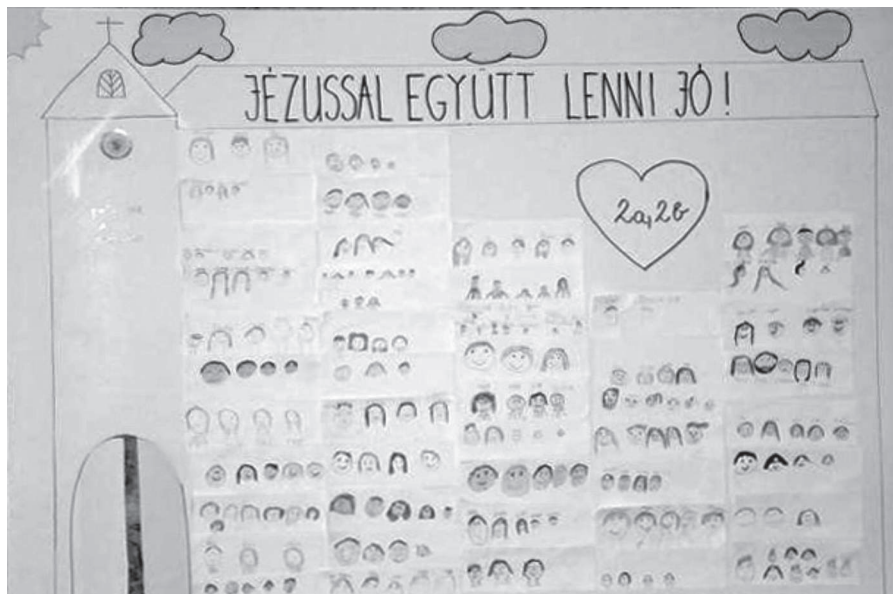 JÉZUSSAL EGYÜTT LENNI JÓ!
2a,2b